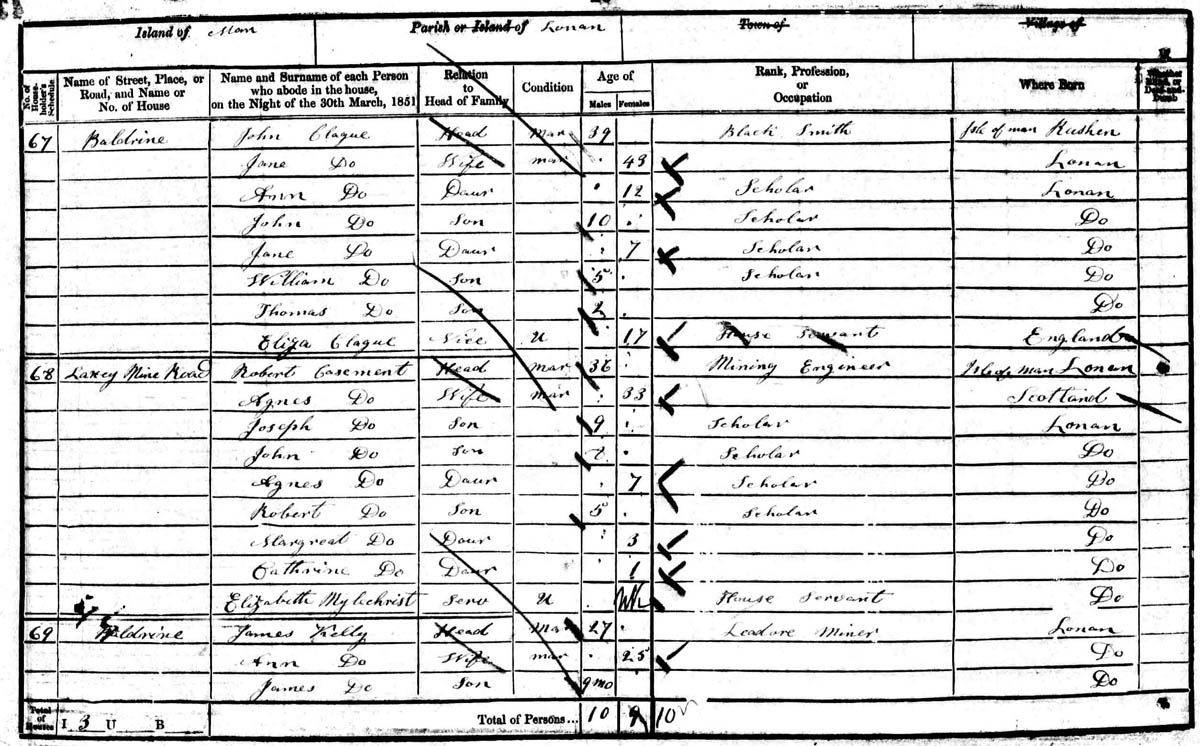 Island of Man Parish or Island of Lonan Town of Village of
No. of House-holder's Schedule Name of Street, Place, or Road, and Name or No. of House Name and Surname of each Person who abode in the house, on the Night of the 30th March, 1851 Relation to Head of Family Condition Age of Males Females Rank, Profession, or Occupation Where Born Whether Blind, or Deaf-and-Dumb
67 Baldrine John Clague Head Mar 39 Black Smith Isle of man Rushen
Jane Do Wife mar 43 Lonan
Ann Do Daur 12 Scholar Lonan
John Do Son 10 Scholar Do
Jane Do Daur 7 Scholar Do
William Do Son 5 Scholar Do
Thomas Do Son 2 Do
Eliza Clague Niece U 17 House Servant England
68 Laxey Mine Road Robert Casement Head Mar 36 Mining Engineer Isle of man Lonan
Agnes Do Wife mar 33 Scotland
Joseph Do Son 9 Scholar Lonan
John Do Son Scholar Do
Agnes Do Daur 7 Scholar Do
Robert Do Son 5 Scholar Do
Margreat Do Daur 3 Do
Cathrine Do Daur 1 Do
Elizabeth Mylechrist Serv U House Servant Do
69 Baldrine James Kelly Head Mar 27 Leadore Miner Lonan
Ann Do Wife mar 25 Do
James Do Son 9 mo Do
Total of Houses I 3 U B Total of Persons... 10 9 10